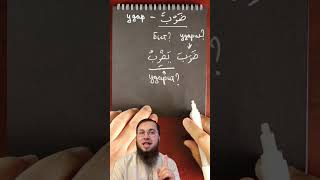 удар – ضَرْبٌ
Бил? ударил?
ضَرَبَ يَضْرِبُ
ударил?